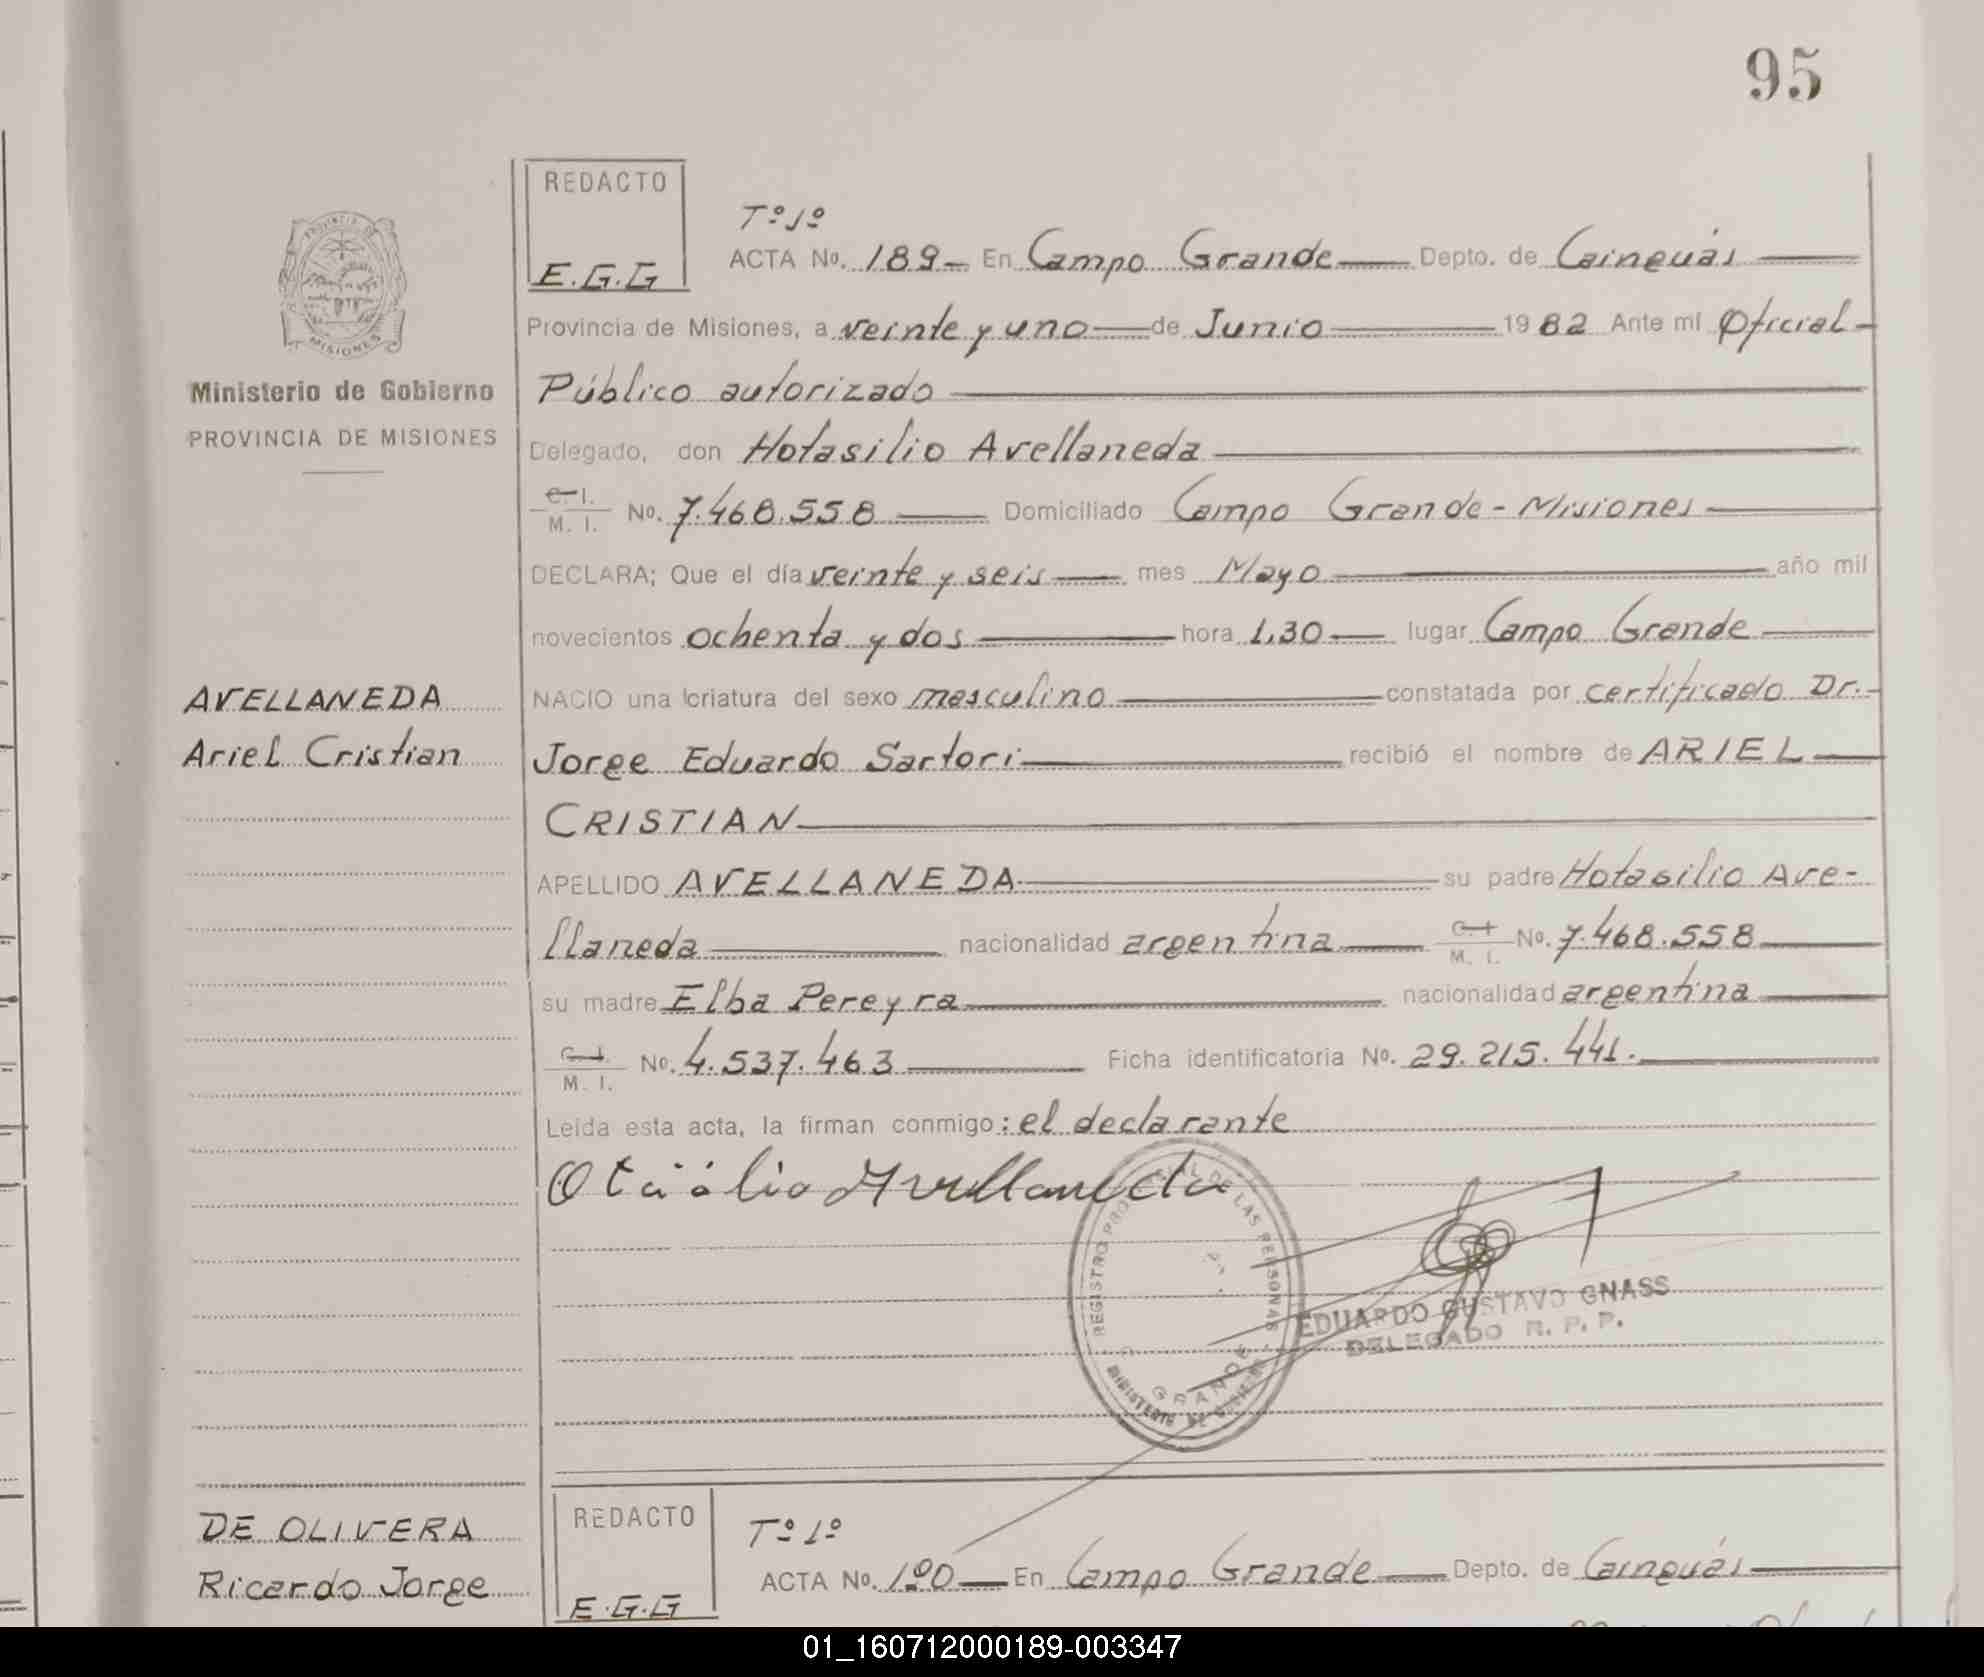 95
REDACTO
E.G.G
Tº 1º
ACTA No. 189- En Campo Grande Depto. de Cainguás
Provincia de Misiones, a veinte y uno de Junio 1982 Ante mi Oficial
Ministerio de Gobierno
PROVINCIA DE MISIONES
Público autorizado
Delegado, don Hotasilio Avellaneda
C. I.
M. I. No. 7.468.558 Domiciliado Campo Grande - Misiones
DECLARA; Que el día veinte y seis mes Mayo año mil
novecientos ochenta y dos hora 1,30 lugar Campo Grande
AVELLANEDA
Ariel Cristian
NACIO una criatura del sexo masculino constatada por certificado Dr.
Jorge Eduardo Sartori recibió el nombre de ARIEL
CRISTIAN
APELLIDO AVELLANEDA su padre Hotasilio Ave-
llaneda nacionalidad argentina C. I. M. I. No. 7.468.558
su madre Elba Pereyra nacionalidad argentina
C. I.
M. I. No. 4.537.463 Ficha identificatoria No. 29.215.441.
Leida esta acta, la firman conmigo: el declarante
Avellaneda
REGISTRO PROVINCIAL DE LAS PERSONAS
GRANDE
MINISTERIO DE GOBIERNO
EDUARDO GUSTAVO GNASS
DELEGADO R. P. P.
DE OLIVERA
Ricardo Jorge
REDACTO
E.G.G
Tº 1º
ACTA No. 190 En Campo Grande Depto. de Cainguás
01_160712000189-003347